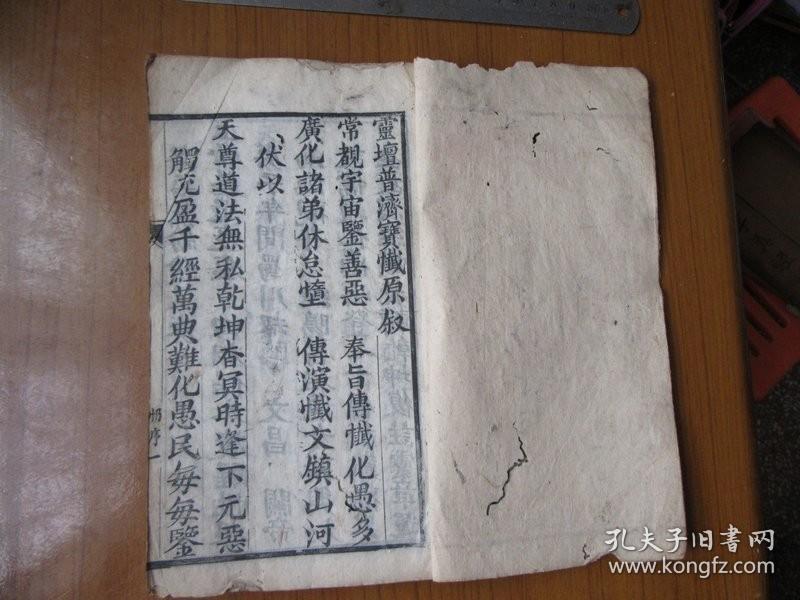 靈壇普濟寶懺原叙
常覩宇宙鑒善惡　奉旨傳懺化愚多
廣化諸弟休怠墮　傳演懺文鎮山河
伏以
天尊道法無私乾坤杳冥時逢下元惡
觸充盈千經萬典難化愚民每每鑒
孔夫子旧书网
www.kongfz.com